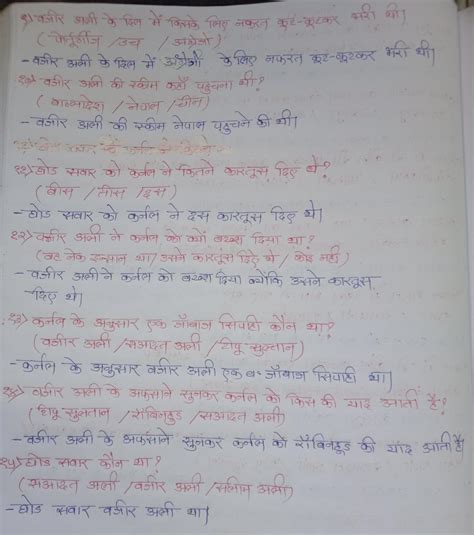 ९) वजीर अली के दिल में किसके लिए नफरत कूट-कूटकर भरी थी।
( पोर्तुगीज / डच / अंग्रेजो )
- वजीर अली के दिल में अंग्रेजो के लिए नफरत कूट-कूटकर भरी थी।
१०) वजीर अली की स्कीम कहाँ पहुचना थी?
( बांग्लादेश / नेपाल / चीन )
- वजीर अली की स्कीम नेपाल पहुचने की थी।
११) घोड सवार को कर्नल ने कितने कारतूस दिए थे?
( बीस / तीस / दस )
- घोड सवार को कर्नल ने दस कारतूस दिए थे।
१२) वजीर अली ने कर्नल को क्यों बख्श दिया था?
( वह नेक इन्सान था / उसने कारतूस दिए थे / कोई नही )
- वजीर अली ने कर्नल को बख्श दिया क्योंकि उसने कारतूस
दिए थे।
१३) कर्नल के अनुसार एक जाँबाज सिपाही कौन था?
( वजीर अली / सआदत अली / टीपू सुल्तान )
- कर्नल के अनुसार वजीर अली एक जाँबाज सिपाही था।
१४) वजीर अली के अफसाने सुनकर कर्नल को किस की याद आती है?
( टिपू सुलतान / रॉबिनहुड / सआदत अली )
- वजीर अली के अफसाने सुनकर कर्नल को रॉबिनहुड की याद आती है।
१५) घोड सवार कौन था?
( सआदत अली / वजीर अली / सलीम अली )
- घोड सवार वजीर अली था।